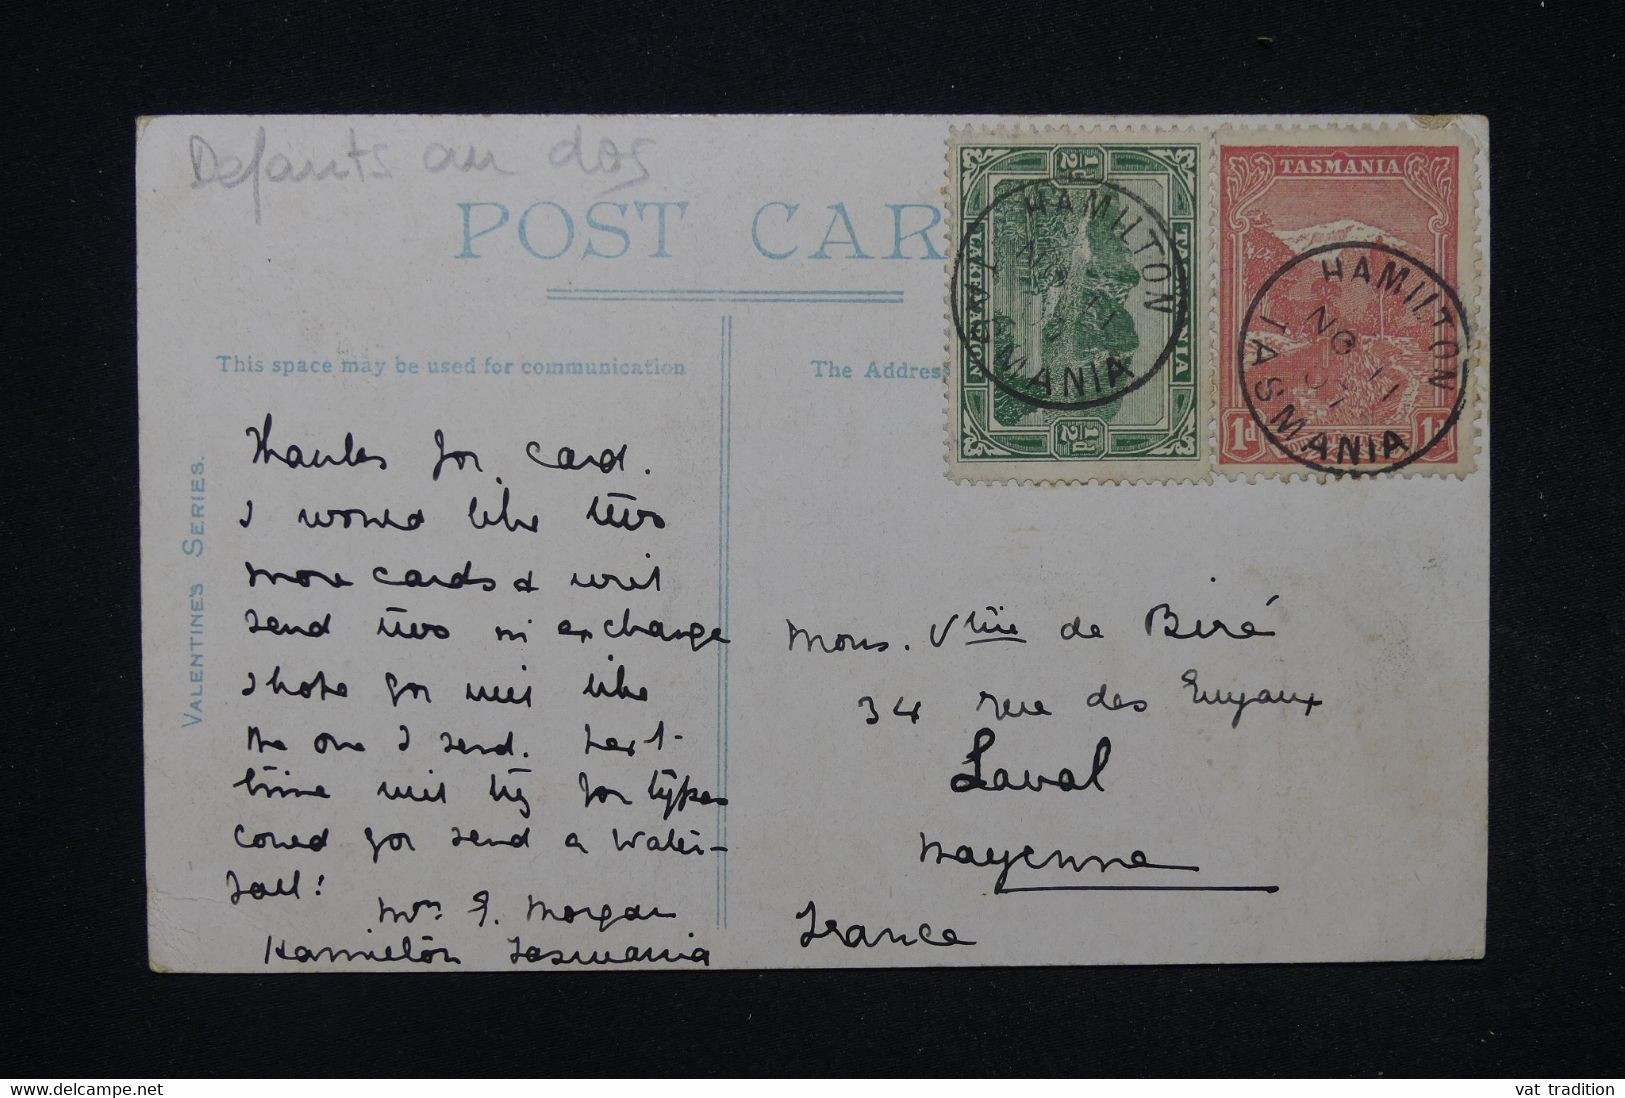 Defauts au dos
POST CAR
This space may be used for communication
The Address
VALENTINE'S SERIES.
Thanks for card.
I would like two
more cards & will
send two in exchange
I hope you will like
the one I send. Next
time will try for types
could you send a Water-
fall!
Mrs G. Morgan
Hamilton Tasmania
½d
TASMANIA
½d
HAMILTON
NO 11
TASMANIA
TASMANIA
1d
1d
HAMILTON
NO 11
TASMANIA
Mons. Vte de Biré
34 rue des
Laval
Mayenne
France
Delcampe.net
vat_tradition